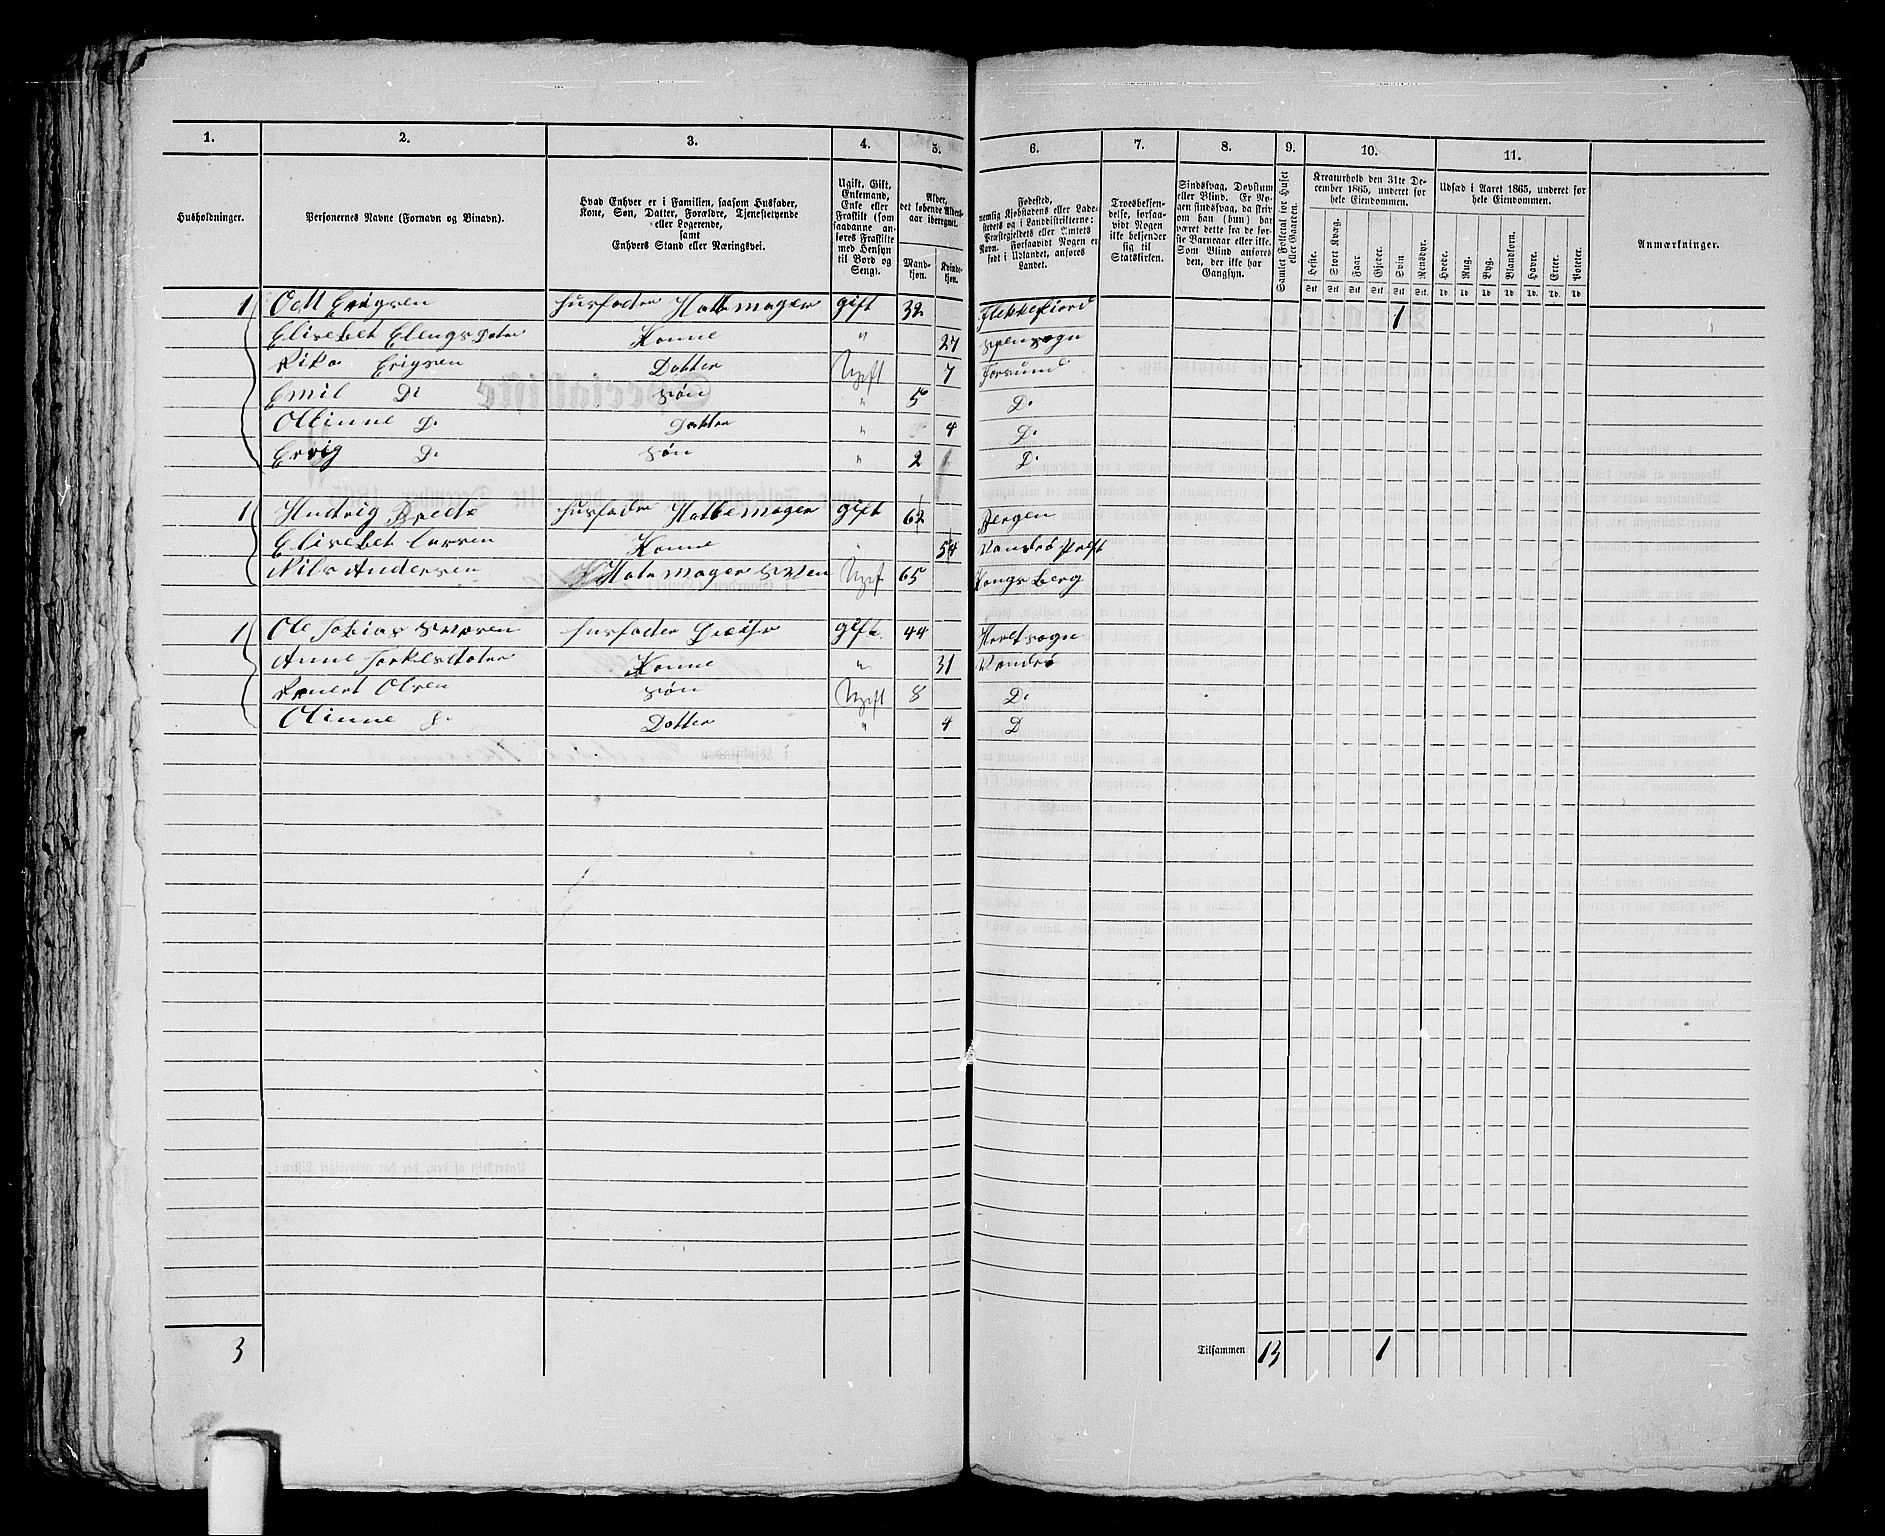 1. 2. 3. 4. 5. 6. 7. 8. 9. 10. 11.
Husholdninger.
Personernes Navne (Fornavn og Binavn).
Hvad Enhver er i Familien, saasom Husfader,
Kone, Søn, Datter, Forældre, Tjenestetyende
eller Logerende,
samt
Enhvers Stand eller Næringsvei.
Ugift, Gift,
Enkemand,
Enke eller
Fraskilt (som
saadanne an-
føres Fraskilte
med Hensyn
til Bord og
Seng).
Alder,
det løbende Alders-
aar iberegnet.
Mand-
kjøn.
Kvinde-
kjøn.
Fødested,
nemlig Kjøbstadens eller Lade-
stedets og i Landdistrikterne:
Præstegjeldets eller Amtets
Navn. Forsaavidt Nogen er
født i Udlandet, anføres
Landet.
Troesbekjen-
delse, forsaa-
vidt Nogen
ikke bekjender
sig til
Statskirken.
Sindssvag, Døvstum
eller Blind. Er No-
gen sindssvag, da skriv
om han (hun) har
været dette fra de før-
ste Barneaar eller ikke.
Som Blind anføres
den, der ikke har
Gangsyn.
Samlet Folketal for Huset
eller Gaarden.
Kreaturhold den 31te De-
cember 1865, underet for
hele Eiendommen.
Heste. Stort Kvæg. Faar. Gjeder. Svin. Rensdyr.
Stk Stk Stk Stk Stk Stk
Udsæd i Aaret 1865, underet for
hele Eiendommen.
Hvede. Rug. Byg. Blandkorn. Havre. Erter. Poteter.
Td. Td. Td. Td. Td. Td. Td
Anmærkninger.
1 Odll Erigsen husfader Hattemager gift 32 Flekkefiord 1
Elisebet Elengsdater Konne " 27
Rika Erigsen Datter Ugift 7 Farsund
Emil D. søn " 5 D.
Ollinne D. Datter " 4 D.
Ervig D. søn " 2 D.
1 Hudvig Brede husfader Hattemager gift 62 Bergen
Elisebet Larsen Konne 54
Nils Andersen Ugift 65 Kongsberg
1 Ole Tobias husfader gift 44
Anne Torkelsdater Konne " 31 Vandsø
Olsen søn Ugift 8 D.
Olinne D. Datter " 4 D
3 Tilsammen 13 1